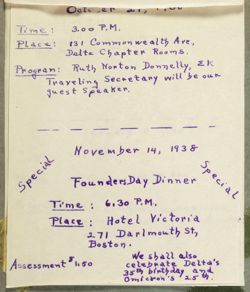 Time: 3.00 P.M.
Place: 131 Commonwealth Ave,
Delta Chapter Rooms.
Program: Ruth Norton Donnelly, ΣK
Traveling Secretary will be our
guest Speaker.
November 14, 1938
Special
Special
Founders Day Dinner
Time: 6.30 P.M.
Place: Hotel Victoria
271 Darlmouth St,
Boston.
Assessment $1.50
We shall also
celebrate Delta's
35th birthday and
Omicron's 25th.